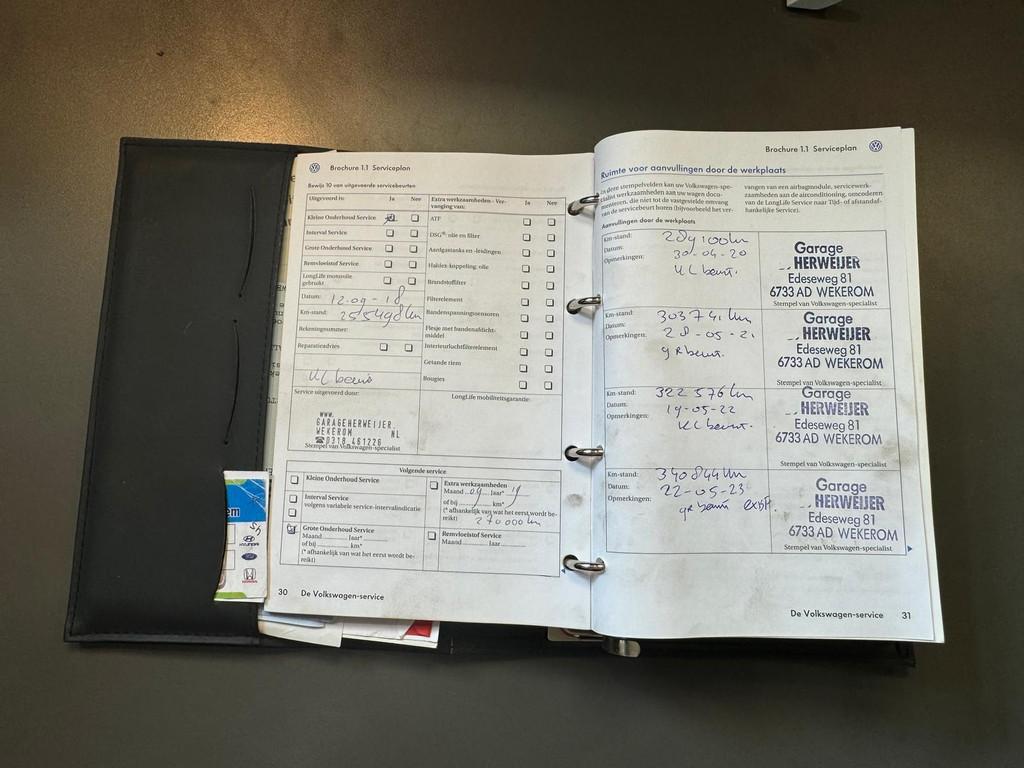 Brochure 1.1 Serviceplan
Bewijs 10 van uitgevoerde servicebeurten
Uitgevoerd is: Ja Nee
Kleine Onderhoud Service
Interval Service
Grote Onderhoud Service
Remvloeistof Service
LongLife motorolie
gebruikt
Datum: 12-09-18
Km-stand: 255498 km
Rekeningnummer:
Reparatieadvies
KL beurt
Service uitgevoerd door:
WWW.
GARAGEHERWEIJER.
WEKEROM NL
☎0318 461226
Stempel van Volkswagen-specialist
Extra werkzaamheden - Ver-
vanging van: Ja Nee
ATF
DSG®: olie en filter
Aardgastanks en -leidingen
Haldex-koppeling: olie
Brandstoffilter
Filterelement
Bandenspanningssensoren
Flesje met bandenafdicht-
middel
Interieurluchtfilterelement
Getande riem
Bougies
LongLife mobiliteitsgarantie:
Volgende service
Kleine Onderhoud Service
Interval Service
volgens variabele service-intervalindicatie
Grote Onderhoud Service
Maand Jaar*
of bij km*
(* afhankelijk van wat het eerst wordt be-
reikt)
Extra werkzaamheden
Maand 09 Jaar* 19
of bij km*
(* afhankelijk van wat het eerst wordt be-
reikt) 270000 km
Remvloeistof Service
Maand Jaar
30 De Volkswagen-service
Brochure 1.1 Serviceplan
Ruimte voor aanvullingen door de werkplaats
In deze stempelvelden kan uw Volkswagen-spe-
cialist werkzaamheden aan uw wagen docu-
menteren, die niet tot de vastgestelde omvang
van de servicebeurt horen (bijvoorbeeld het ver-
vangen van een airbagmodule, servicewerk-
zaamheden aan de airconditioning, omcoderen
van de LongLife Service naar Tijd- of afstandaf-
hankelijke Service).
Aanvullingen door de werkplaats
Km-stand: 289100 km
Datum: 30-04-20
Opmerkingen: KL beurt.
Garage
HERWEIJER
Edeseweg 81
6733 AD WEKEROM
Stempel van Volkswagen-specialist
Km-stand: 303741 km
Datum: 28-05-21
Opmerkingen: gr beurt.
Garage
HERWEIJER
Edeseweg 81
6733 AD WEKEROM
Stempel van Volkswagen-specialist
Km-stand: 322576 km
Datum: 19-05-22
Opmerkingen: KL beurt.
Garage
HERWEIJER
Edeseweg 81
6733 AD WEKEROM
Stempel van Volkswagen-specialist
Km-stand: 340844 km
Datum: 22-05-23
Opmerkingen: gr beurt
Garage
HERWEIJER
Edeseweg 81
6733 AD WEKEROM
Stempel van Volkswagen-specialist
De Volkswagen-service 31
HYUNDAI
HONDA